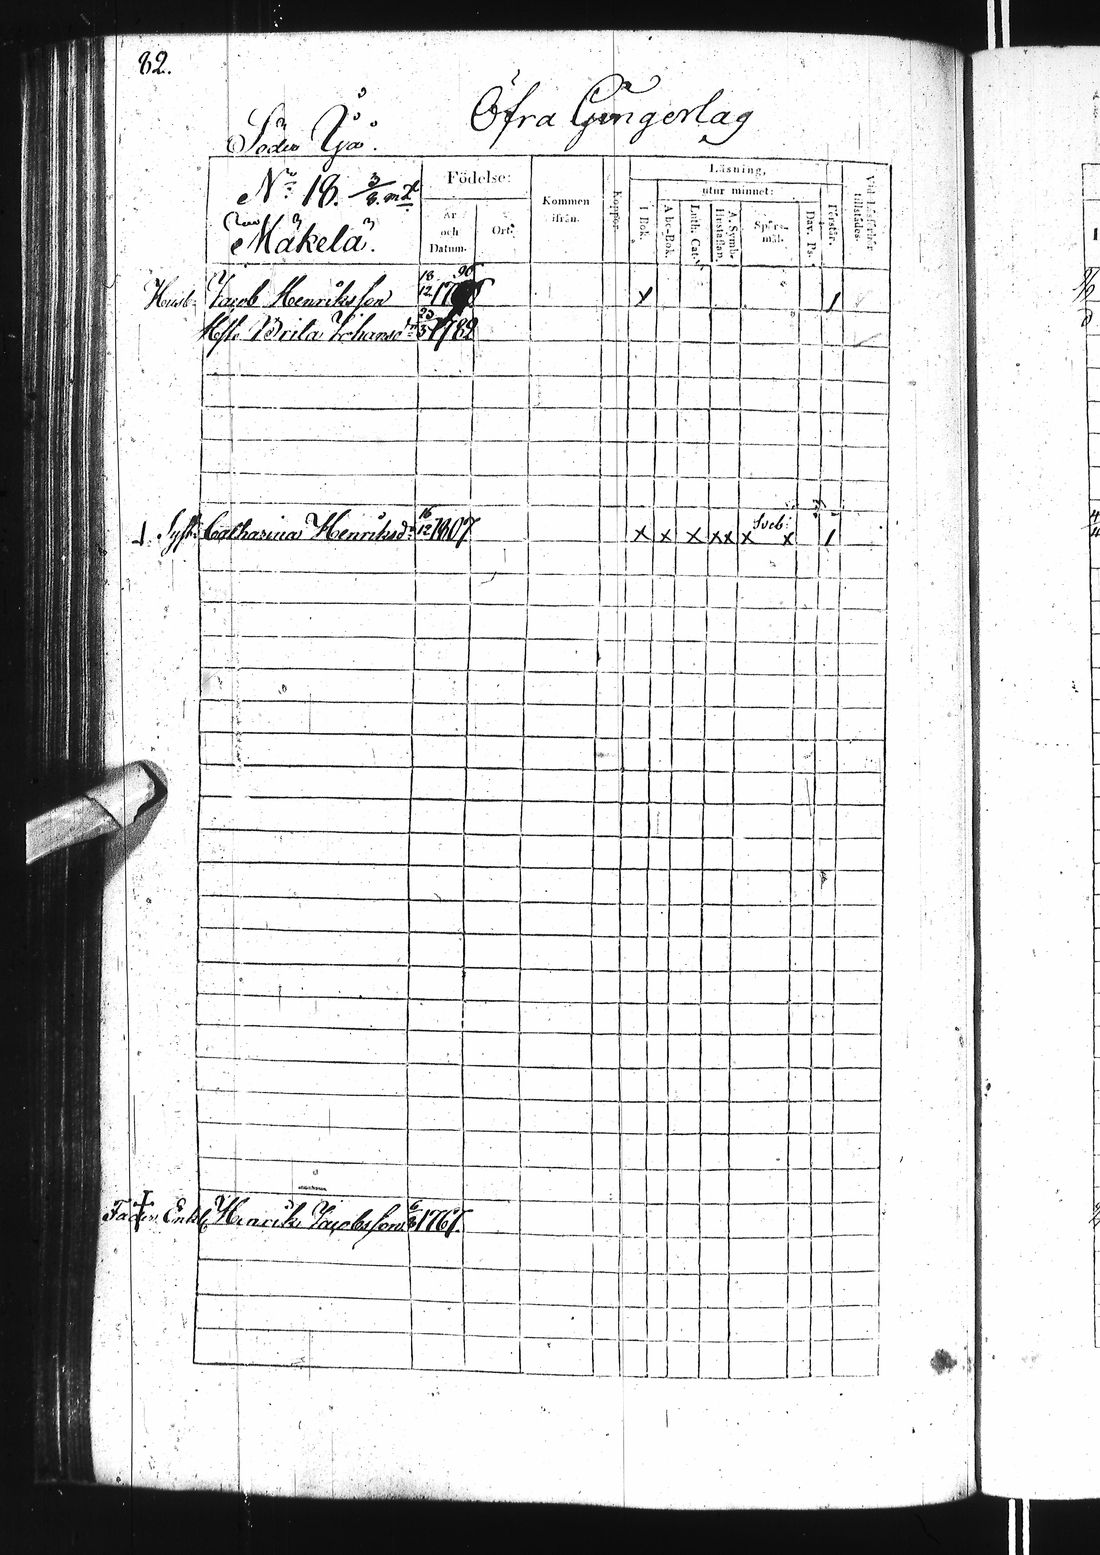 82.
Öfra Gungerlag
Söder Yjä.
No 18. 3/8 mtl
Mäkelä.
Födelse:
År och Datum.
Ort.
Kommen ifrån.
Koppor.
Läsning,
utur minnet:
I Bok.
Abc-Bok.
Luth. Cat.
A. Symb. Hustaflan.
Spörs-mål.
Dav. Ps.
Förstår.
Vid Läsförhör tillstädes.
Husb. Jacob Henriksson 18/12 1790 x 1
Hust. Brita Johansdr 23/3 1782
Syst. Catharina Henriksdr 16/12 1807 x x x xx x Sveb: x 1
Fader Enkl. Henrik Jacobsson 1767.